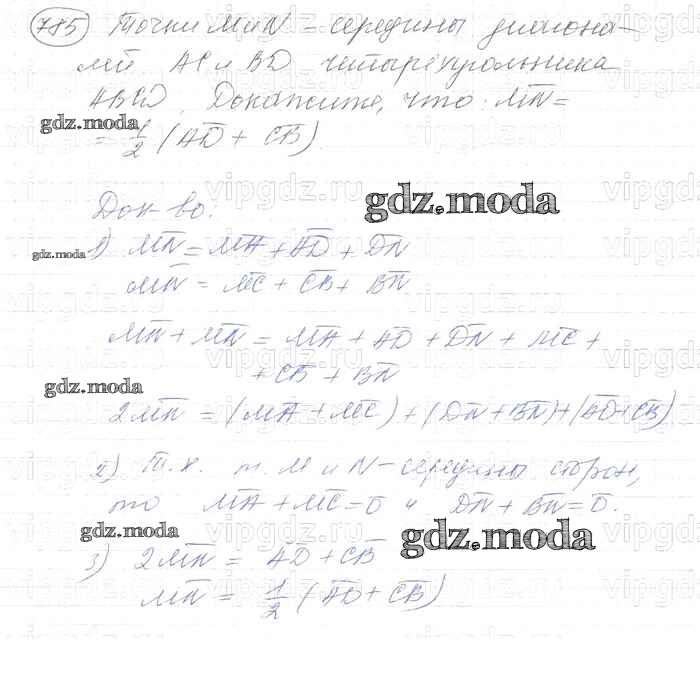 785) Точки M и N - середины диагона-
лей AC и BD четырёхугольника
ABCD. Докажите, что: M̅N̅ =
gdz.moda
= 1/2 (A̅D̅ + C̅B̅).
vipgdz.ru
Док-во.
gdz.moda
gdz.moda
1) M̅N̅ = M̅A̅ + A̅D̅ + D̅N̅
M̅N̅ = M̅C̅ + C̅B̅ + B̅N̅
M̅N̅ + M̅N̅ = M̅A̅ + A̅D̅ + D̅N̅ + M̅C̅ +
+ C̅B̅ + B̅N̅
gdz.moda
2M̅N̅ = (M̅A̅ + M̅C̅) + (D̅N̅ + B̅N̅) + (A̅D̅ + C̅B̅)
2) Т.к. т. M и N - середины сторон,
то M̅A̅ + M̅C̅ = 0̅ и D̅N̅ + B̅N̅ = 0̅.
gdz.moda
gdz.moda
3) 2M̅N̅ = A̅D̅ + C̅B̅
M̅N̅ = 1/2 (A̅D̅ + C̅B̅)